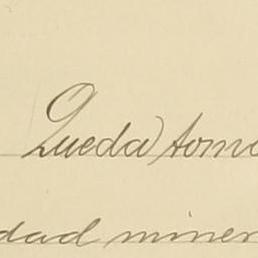 Queda tom
dad miner